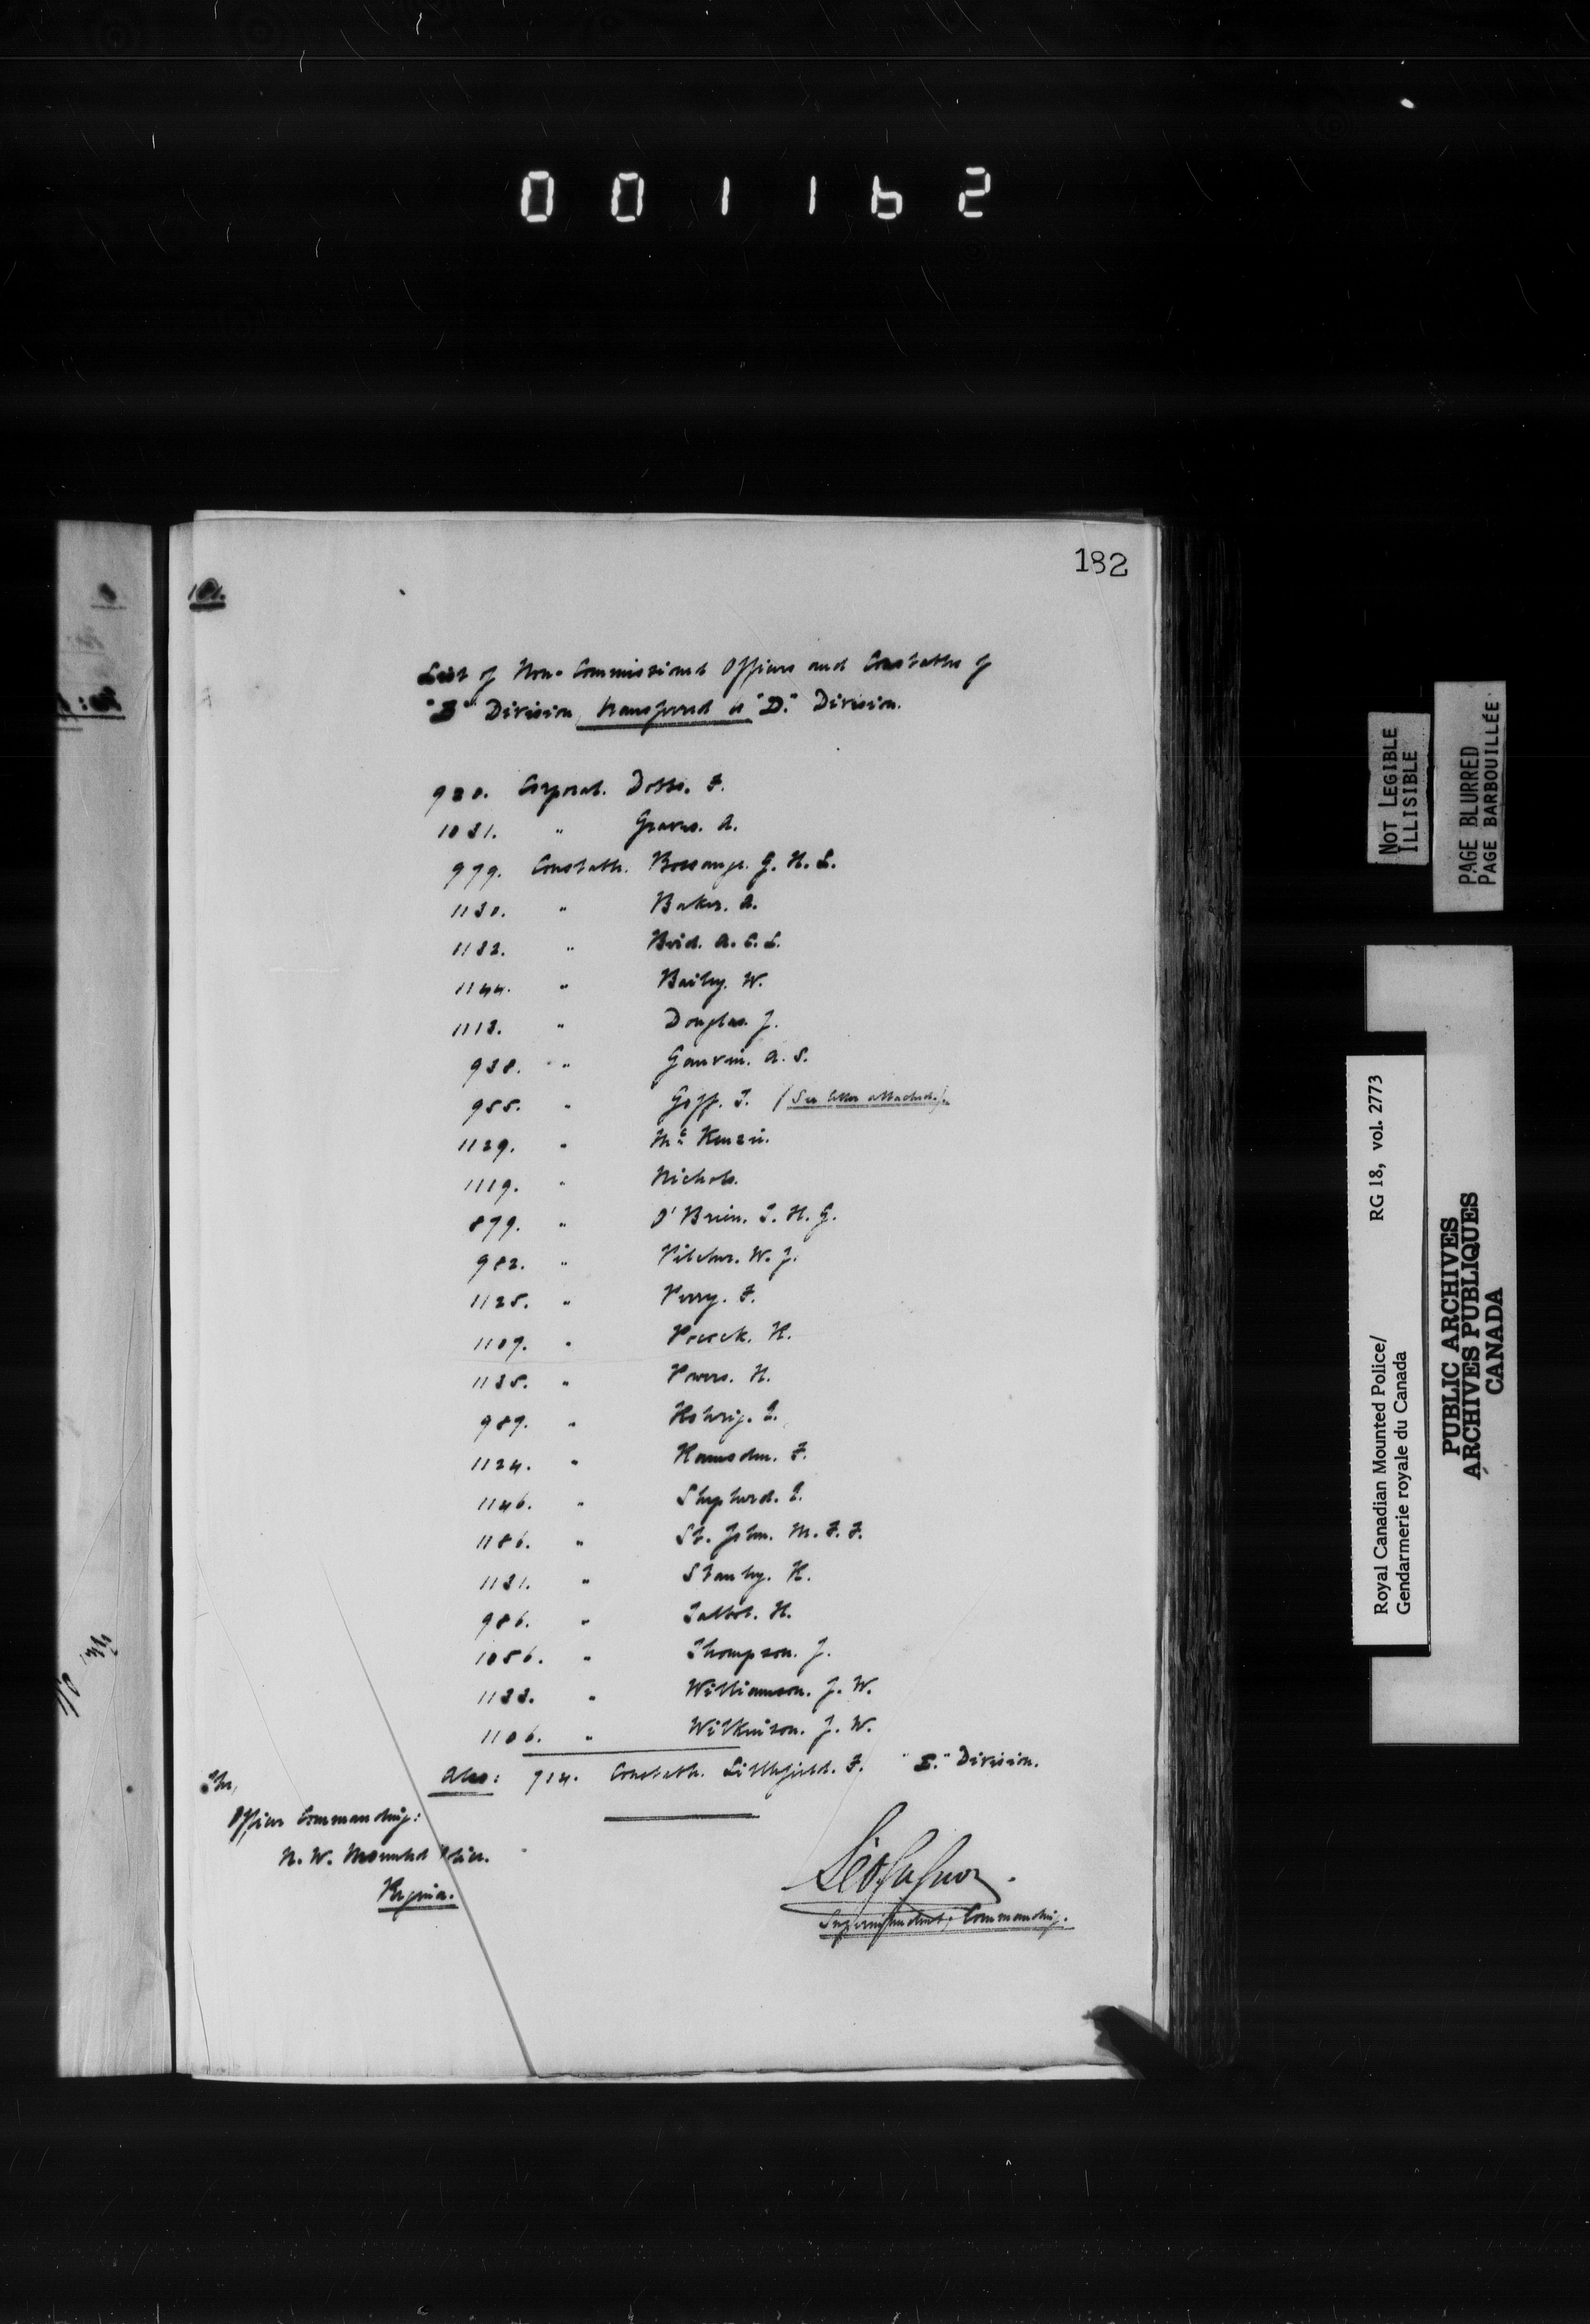 001162
182
181.
List of Non-Commissioned Officers and Constables of
"B" Division, transferred to "D." Division.
930. Corporal. Dobbs. F.
1031. " Graves. A.
979. Constable. Bossange. G. H. L.
1130. " Baker. A.
1132. " Bird. A. C. L.
1144. " Bailey. W.
1113. " Douglas. J.
938. " Gauvin. A. S.
955. " Goff. T. (See letter attached.)
1129. " Mc Kenzie.
1119. " Nichols.
879. " O'Brien. T. H. G.
982. " Pilcher. W. J.
1125. " Perry. F.
1107. " H.
1135. " Powers. H.
989. " Rohrig. T.
1124. " Ramsden. F.
1146. " Shepherd. T.
1186. " St. John. M. F. F.
1131. " Stanley. R.
986. " Talbot. H.
1056. " Thompson. J.
1133. " Williamson. J. W.
1106. " Wilkinson. J. W.
Also: 714. Constable. Littlefield. F. "E." Division.
The,
Officer Commanding:
N. W. Mounted Police.
Regina.
Superintendent, Commanding.
NOT LEGIBLE
ILLISIBLE
PAGE BLURRED
PAGE BARBOUILLÉE
Royal Canadian Mounted Police/ RG 18, vol. 2773
Gendarmerie royale du Canada
PUBLIC ARCHIVES
ARCHIVES PUBLIQUES
CANADA